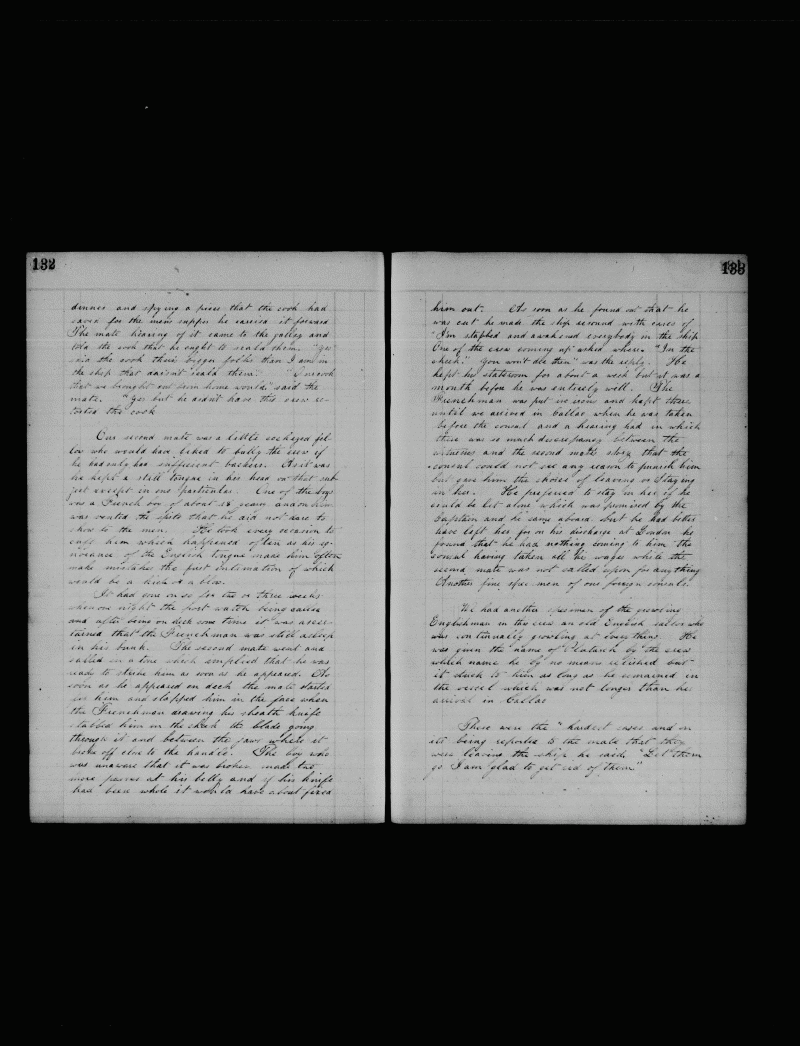 132
dinner and spying a piece that the cook had
saved for the mens supper he carried it forward
The mate hearing of it came to the galley and
told the cook that he ought to scald them. "Yes"
said the cook "theirs bigger folks than I am in
the ship that daresn't scald them." "One cook
that we brought out from home would" said the
mate. "Yes but he didn't have this crew re-
torted the cook
Our second mate was a little sockeyed fel-
low who would have liked to bully the crew if
he had only had sufficient backers. As it was
he kept a still tongue in his head on that sub-
ject except in one particular. One of the boys
was a French boy of about 18 years and on him
was vented the spite that he did not dare to
show to the men. He took every occasion to
cuff him which happened often as his ig-
norance of the English tongue made him often
make mistakes the first intimation of which
would be a kick or a blow.
It had gone on so for two or three weeks
when one night the first watch being called
and after being on deck some time it was ascer-
tained that the Frenchman was still asleep
in his bunk. The second mate went and
called in a tone which implied that he was
ready to strike him as soon as he appeared. As
soon as he appeared on deck the mate started
for him and slapped him in the face when
the Frenchman drawing his sheath knife
stabbed him in the cheek the blade going
through it and between the jaws where it
broke off close to the handle. The boy who
was unaware that it was broken made two
more passes at his belly and if his knife
had been whole it would have about fixed
133
him out. As soon as he found out that he
was cut he made the ship resound with cries of
"I'm stabbed and awakened everybody in the ship
One of the crew coming up asked where. "In the
cheek." "You won't die then" was the reply. He
kept his stateroom for about a week but it was a
month before he was entirely well. The
Frenchman was put in irons and kept there
until we arrived in Callao when he was taken
before the consul and a hearing had in which
there was so much discrepancy between the
witnesses and the second mates story that the
consul could not see any reason to punish him
but gave him the choice of leaving or staying
in her. He preferred to stay in her if he
could be let alone which was promised by the
Captain and he came aboard but he had better
have left her for on his discharge at London he
found that he had nothing coming to him the
consul having taken all his wages while the
second mate was not called upon for any thing
Another fine specimen of one foreign consuls.
We had another specimen of the growling
Englishman in this crew an old English sailor who
was continually growling at everything. He
was given the name of by the crew
which name he by no means relished but
it stuck to him as long as he remained in
the vessel which was not longer than her
arrival in Callao
These were the "hardest cases and on
its being reported to the mate that they
were leaving the ship he said "Let them
go I am glad to get rid of them"